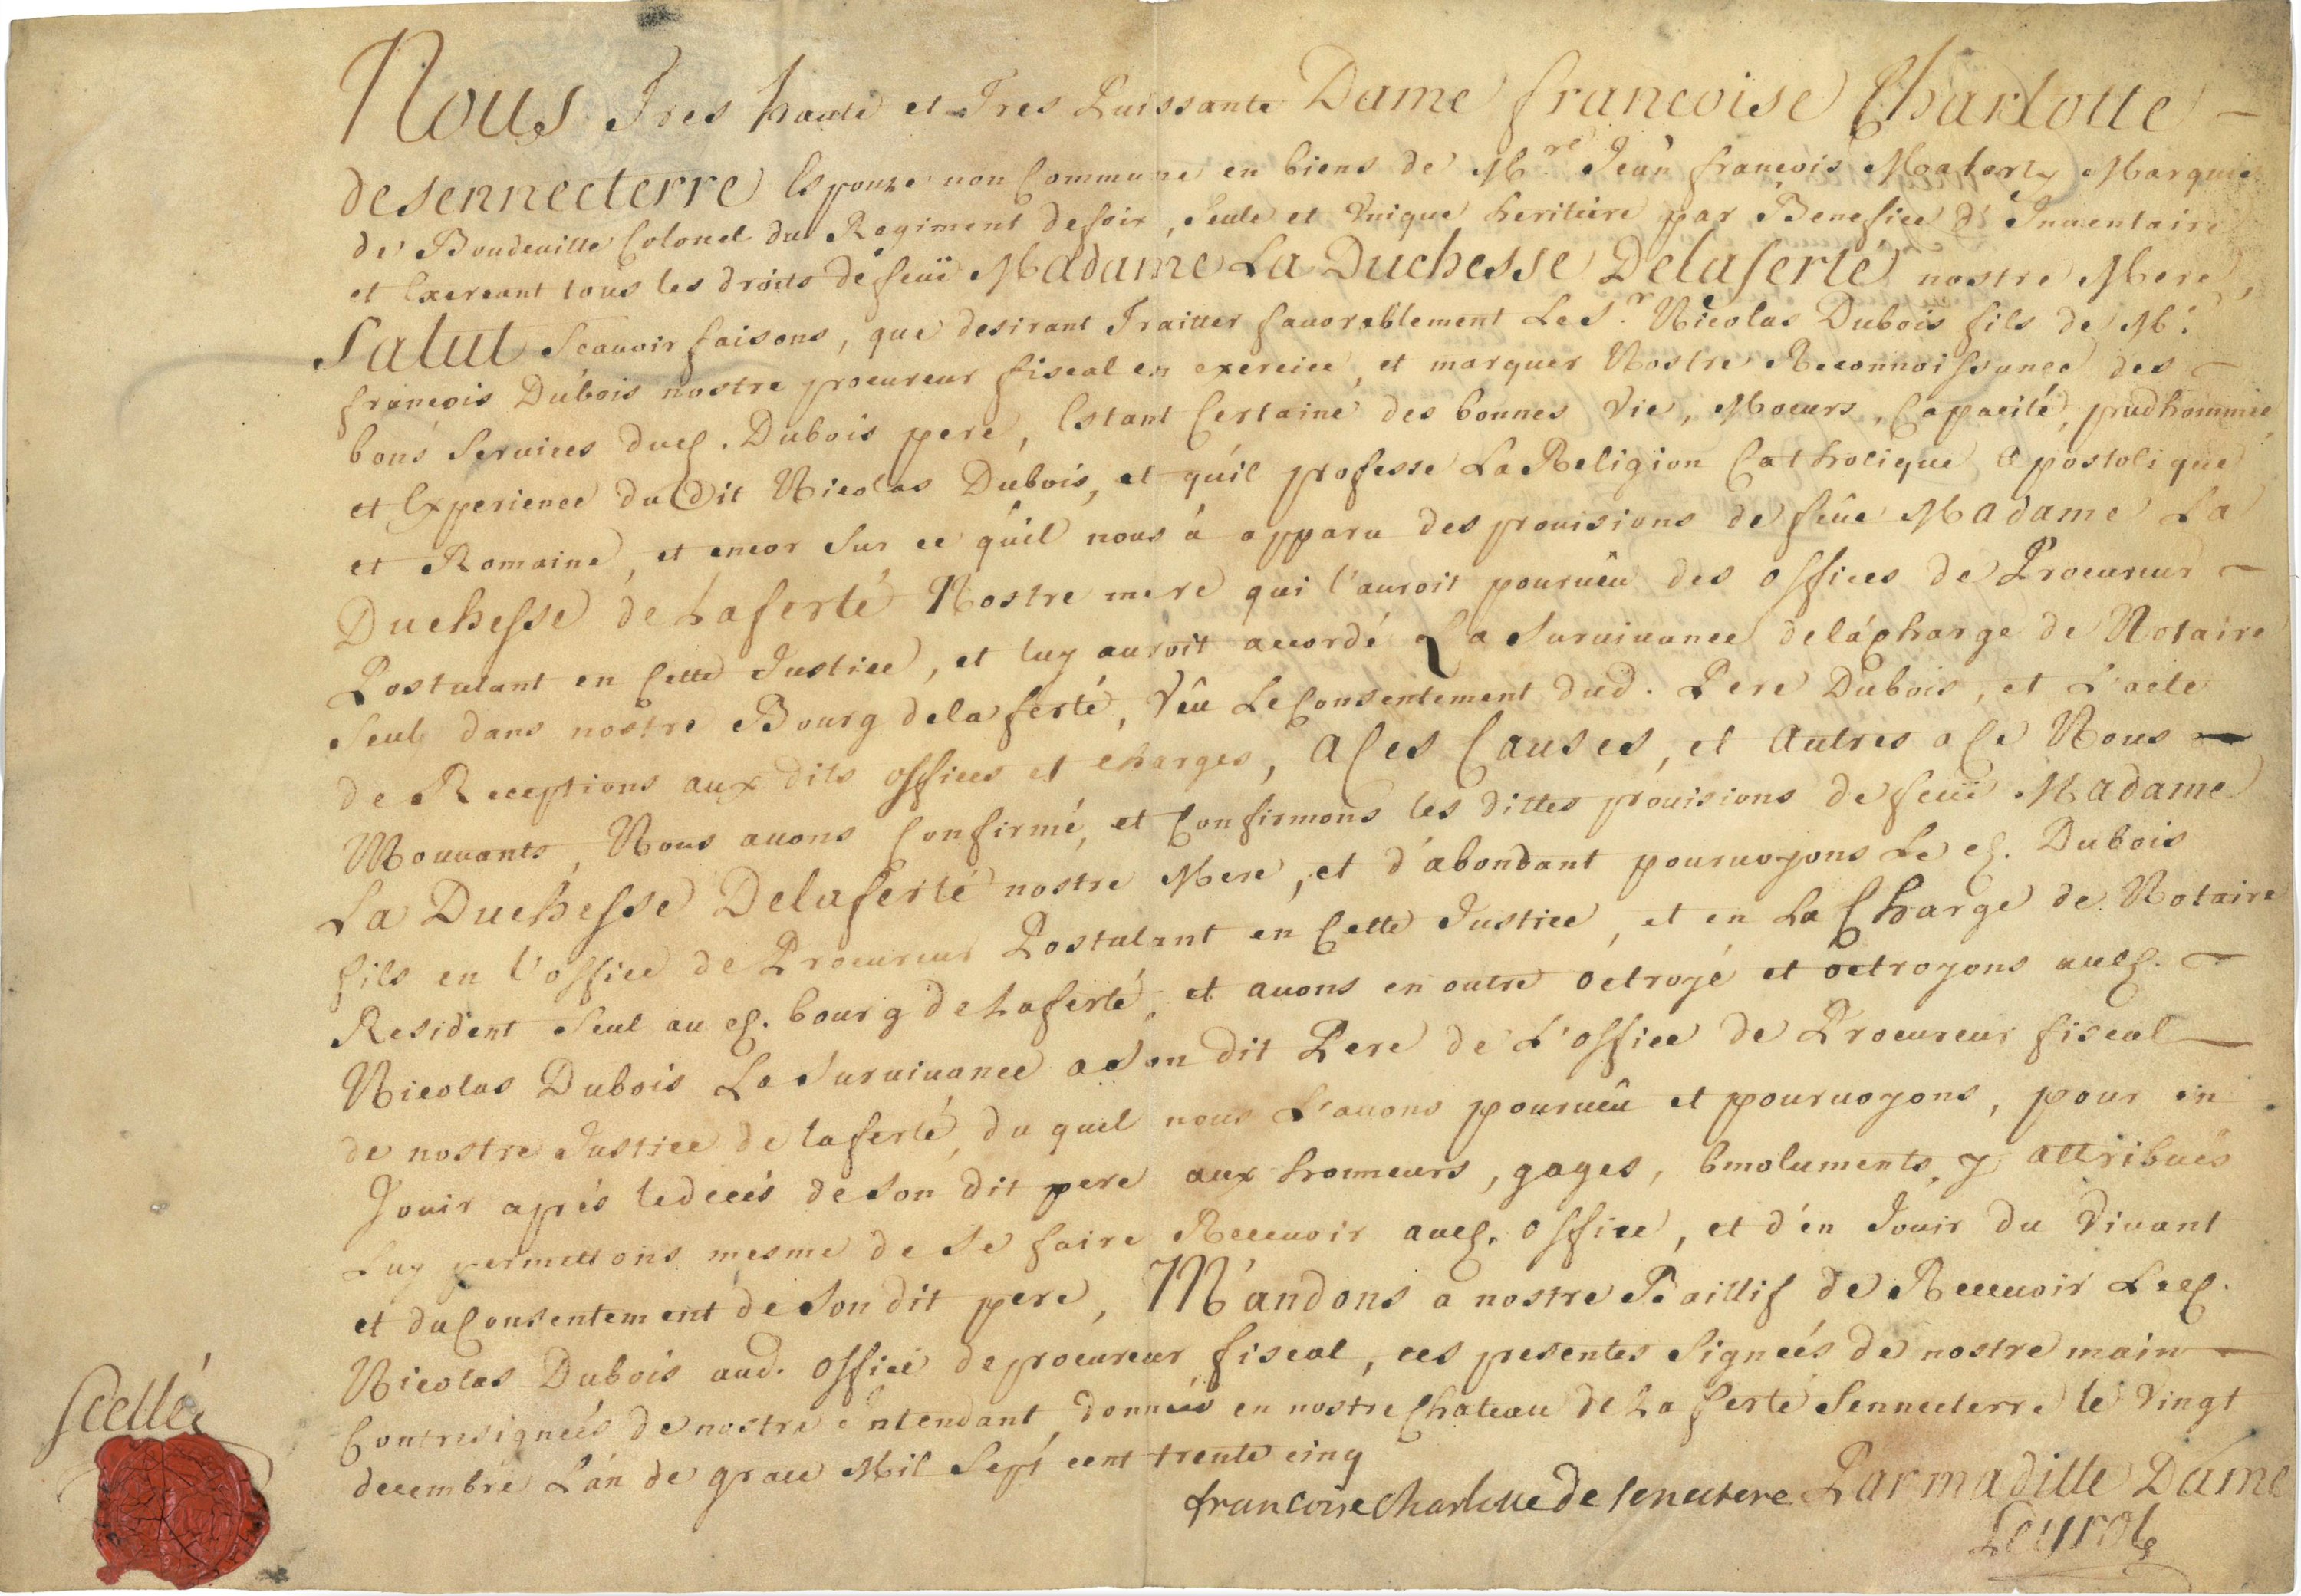 Nous Tres haute et Tres Puissante Dame francoise Charlotte –
desennecterre Espouze non Commune en biens de M.re Jean francois Marquis
de Boudeuille Colonel du Regiment de foix, seule et Vnique heritiere par Benefice d'Inuentaire
et Exercant tous les droits de feuë Madame La Duchesse Delaferté nostre Mere,
Salut Scauoir faisons, que desirant Traitter fauorablement Le S.r Nicolas Dubois fils de M.e
francois Dubois nostre procureur fiscal en exercice, et marquer Nostre Reconnoissance des –
bons seruices dud. Dubois pere, Estant Certaine des bonnes Vie, Moeurs, Capacité, prudhommie
et Experience du Dit Nicolas Dubois, et qu'il professe La Religion Catholique Apostolique
et Romaine, et encor sur ce qu'il nous à apparu des prouisions de feüe Madame La
Duchesse de Laferté Nostre mere qui l'auroit pourueu des offices de Procureur –
Postulant en Cette Justice, et luy auroit accordé La Suruiuance de la Charge de Notaire
Seul dans nostre Bourg de la ferté, Vêu Le Consentement dud. Pere Dubois, et L'acte
de Receptions aux dits offices et charges, A Ces Causes, et Autres a Ce Nous –
Mouuants, Nous auons Confirmé, et Confirmons les dittes prouisions de feuë Madame
La Duchesse Delaferté nostre Mere, et d'abondant pouruoyons Le d. Dubois
fils en l'office de Procureur Postulant en Cette Justice, et en La Charge de Notaire
Resident seul au d. bourg de Laferté, et auons en outre octroyé et octroyons aud. –
Nicolas Dubois La Suruiuance a son dit Pere de L'office de Procureur fiscal –
de nostre Justice de laferté, du quel nous L'auons pourueu et pouruoyons, pour en
Jouir aprés le decés de son dit pere aux honneurs, gages, Emoluments, y attribués
Luy permettons mesme de se faire Receuoir aud. office, et d'en Jouir du Viuant
et du Consentement de son dit pere, Mandons a nostre Baillif de Receuoir Led.
Nicolas Dubois aud. office de procureur fiscal, ces presentes signées de nostre main –
Contresignées de nostre intendant, données en nostre Chateau de La ferté Sennecterre le Vingt
decembre L'an de grace Mil Sept cent trente cinq
francoise Charlotte de senectere Par maditte Dame
Scellé